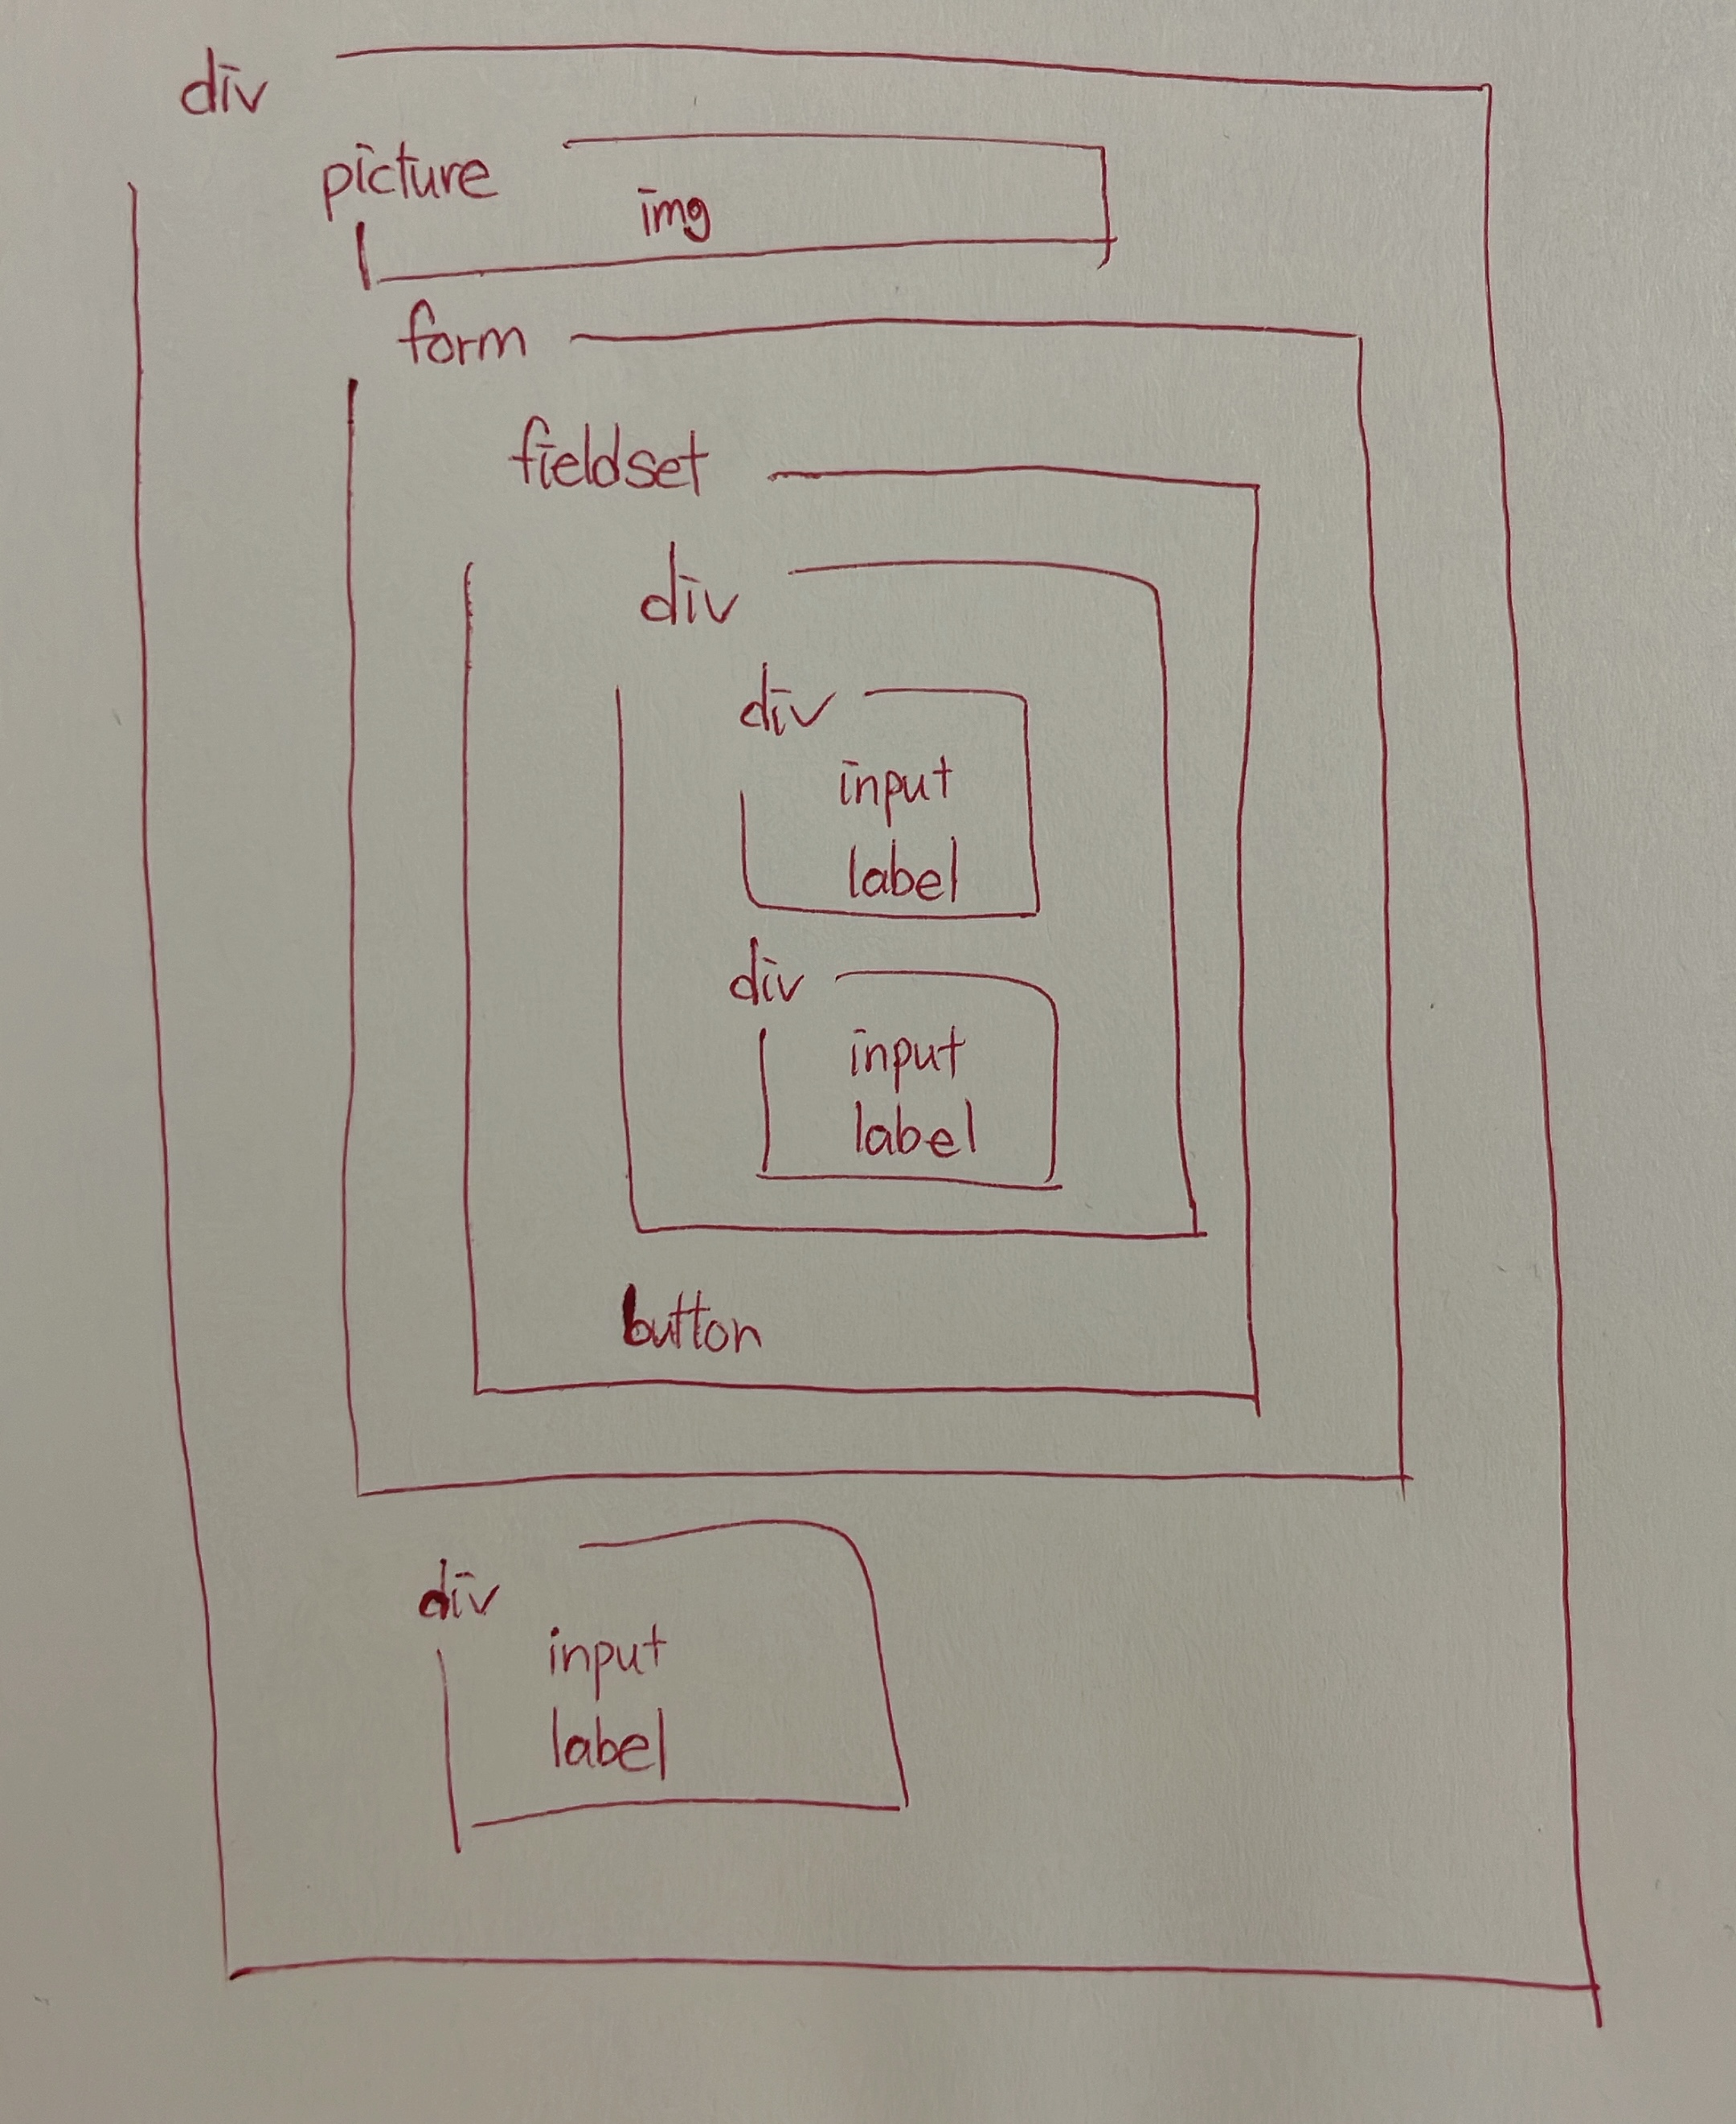 div
picture
img
form
fieldset
div
div
input
label
div
input
label
button
div
input
label